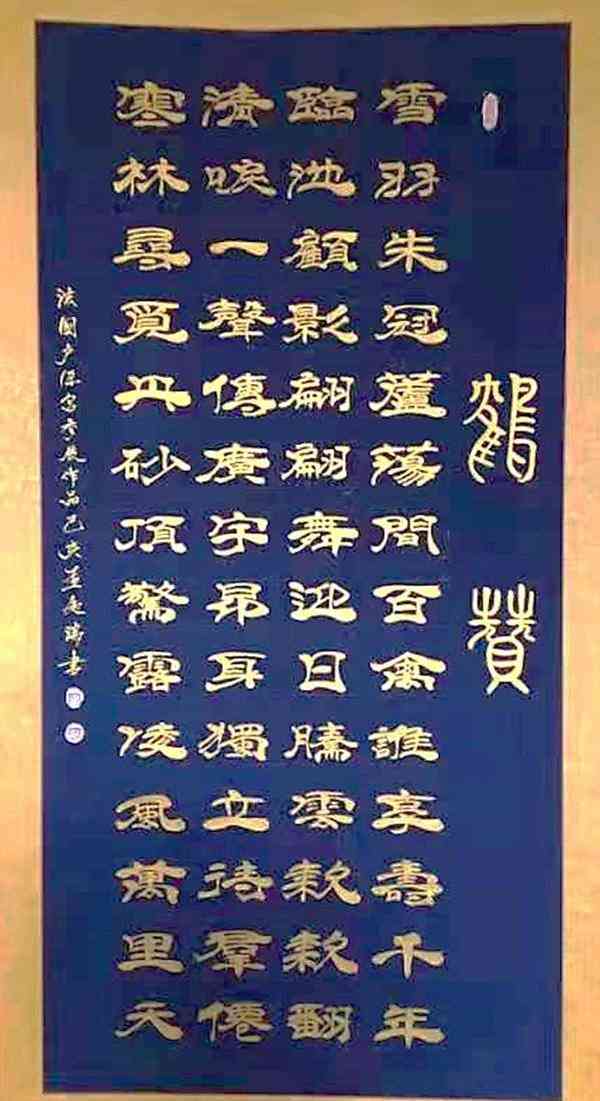 鶴贊
雪羽朱冠蘆蕩間百禽誰享壽千年
臨池顧影翩翩舞迎日騰雲款款翻
清唳一聲傳廣宇昂耳獨立待羣僊
寒林尋覓丹砂頂驚露凌風萬里天
法國卢浮宫参展作品己亥瑞書